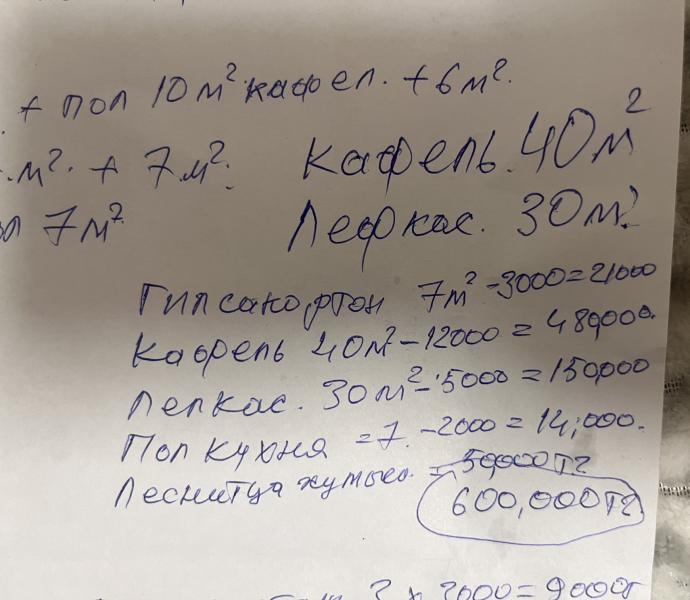 + пол 10м² кафел. + 6м².
.м². + 7м². Кафель. 40м²
7м² Лефкас. 30м².
Гипсакортон 7м² - 3000 = 21000
Кафель 40м² - 12000 = 480,000.
Лепкас. 30м² - 5000 = 150,000
Пол кухня = 7. - 2000 = 14,000.
Леснитца = 50,000тг
600,000тг
3 x 3000 = 9000т